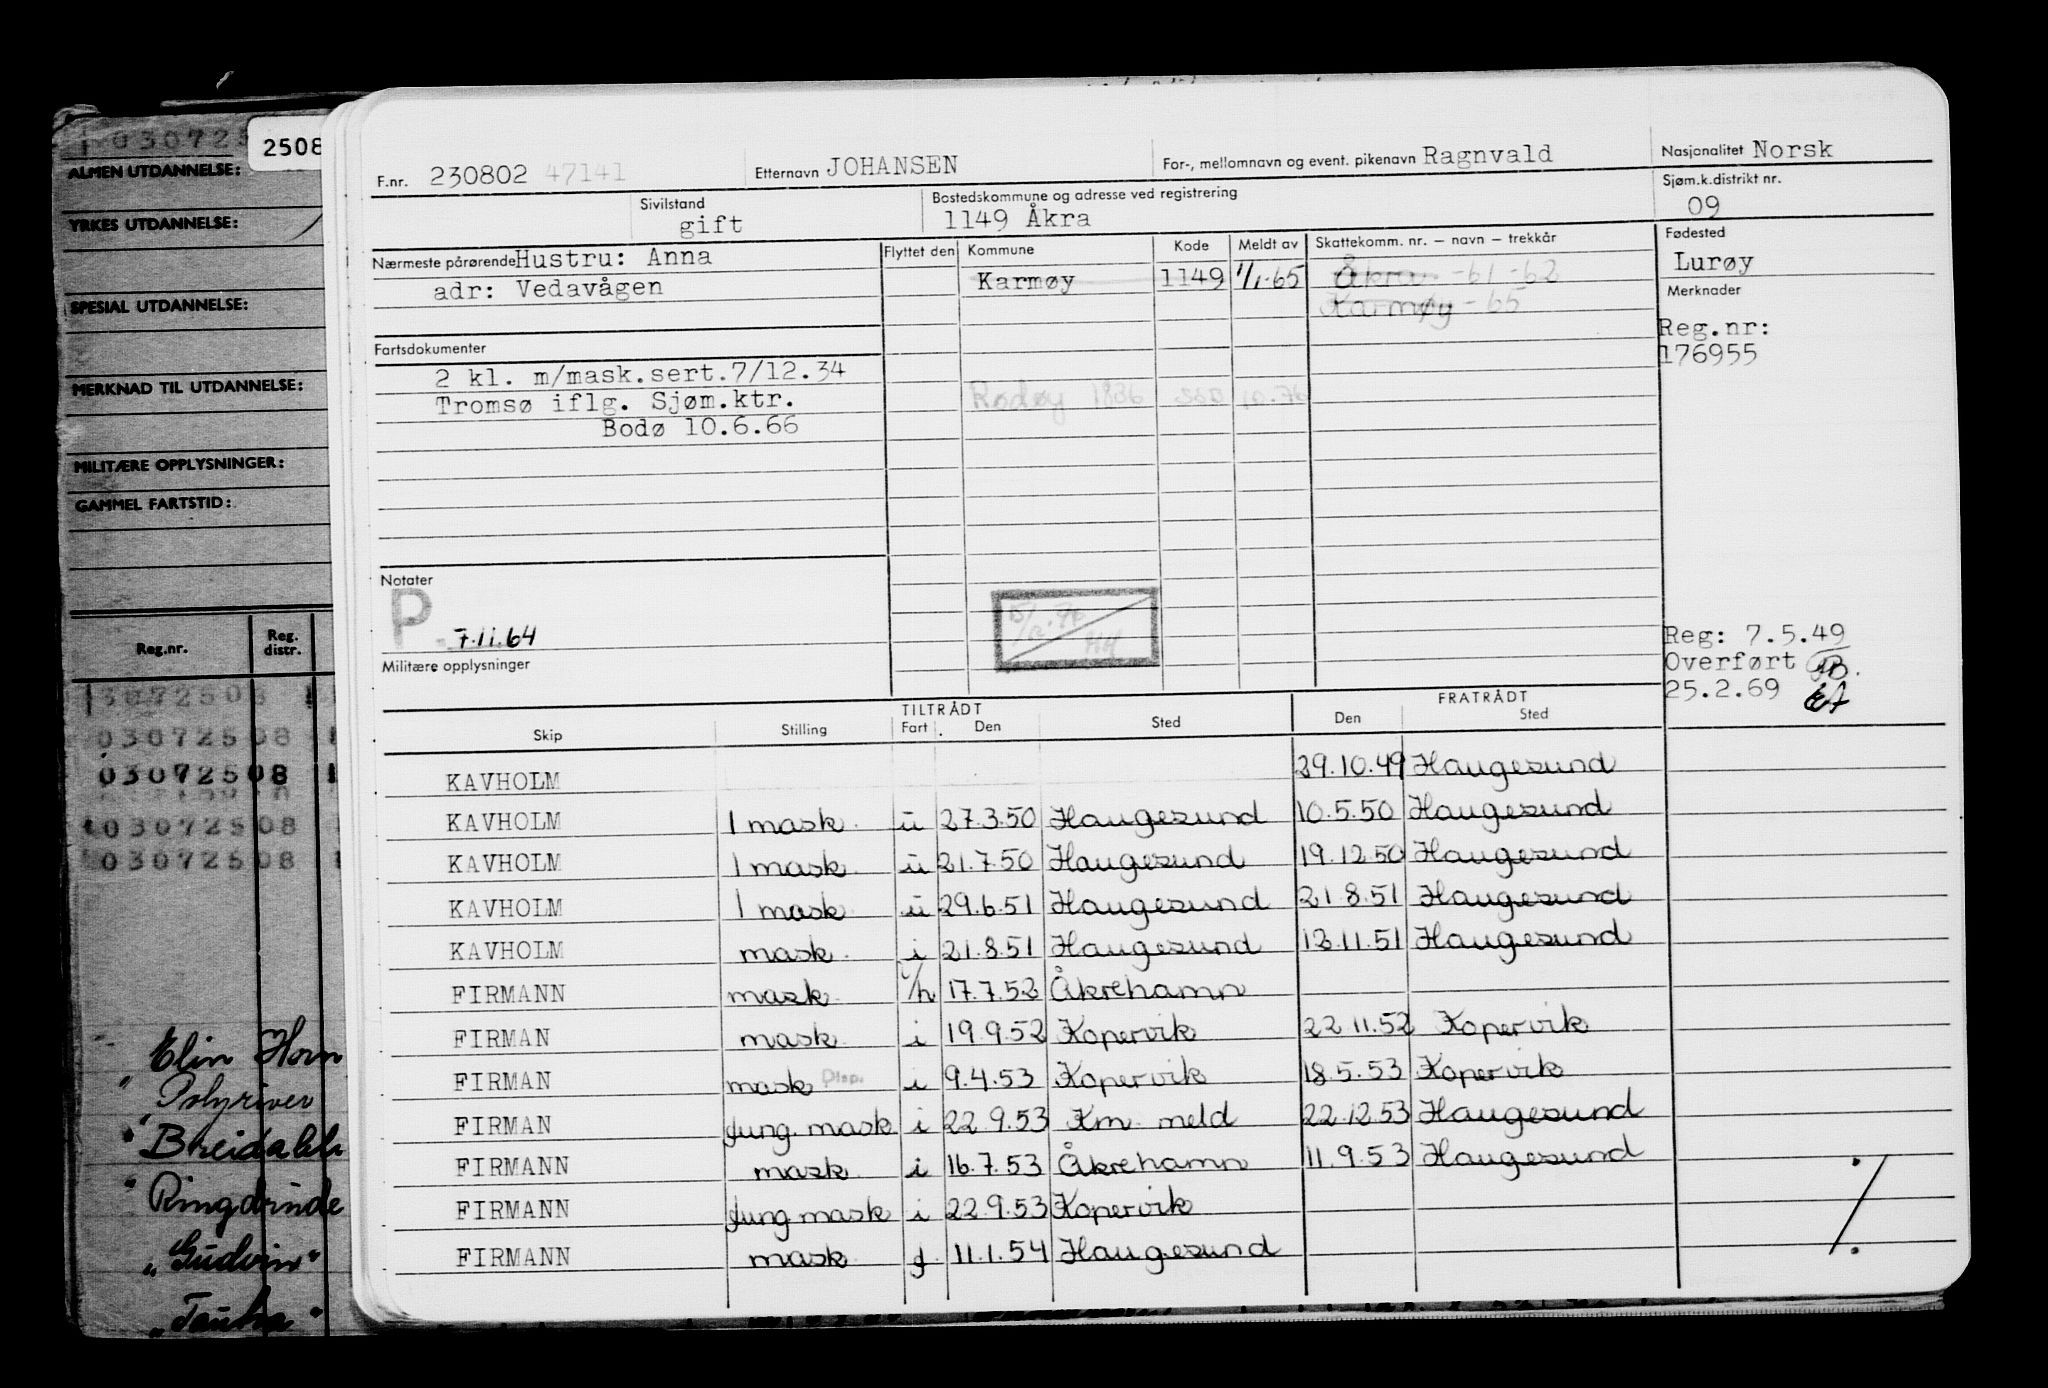 030725
2508
ALMEN UTDANNELSE:
YRKES UTDANNELSE:
SPESIAL UTDANNELSE:
MERKNAD TIL UTDANNELSE:
MILITÆRE OPPLYSNINGER:
GAMMEL FARTSTID:
Reg.nr. Reg. distr.
03072508
03072508
03072508
03072508
Elin Horn
Breidablik
Ringdrinde
"Gudvin"
F.nr. 230802 47141 Etternavn JOHANSEN For-, mellomnavn og event. pikenavn Ragnvald Nasjonalitet Norsk
Sivilstand gift Bostedskommune og adresse ved registrering 1149 Åkra Sjøm.k.distrikt nr. 09
Nærmeste pårørende Hustru: Anna Flyttet den Kommune Kode Meldt av Skattekomm. nr. – navn – trekkår Fødested
adr: Vedavågen Karmøy 1149 1/1-65 Åkra -61 -62 Lurøy
Karmøy - 65 Merknader
Reg.nr:
176955
Fartsdokumenter
2 kl. m/mask.sert.7/12.34
Tromsø iflg. Sjøm.ktr. Rødøy 1836 SSD 10.76
Bodø 10.6.66
Notater
P 7.11.64
Militære opplysninger
Reg: 7.5.49
Overført
25.2.69
TILTRÅDT FRATRÅDT
Skip Stilling Fart Den Sted Den Sted
KAVHOLM 29.10.49 Haugesund
KAVHOLM 1 mask. u 27.3.50 Haugesund 10.5.50 Haugesund
KAVHOLM 1 mask u 21.7.50 Haugesund 19.12.50 Haugesund
KAVHOLM 1 mask u 29.6.51 Haugesund 21.8.51 Haugesund
KAVHOLM mask. i 21.8.51 Haugesund 13.11.51 Haugesund
FIRMANN mask i/h 17.7.52 Åkrehamn
FIRMAN mask i 19.9.52 Kopervik 22.11.52 Kopervik
FIRMAN mask Disp. i 9.4.53 Kopervik 18.5.53 Kopervik
FIRMAN fung. mask i 22.9.53 Km. meld 22.12.53 Haugesund
FIRMANN mask i 16.7.53 Åkrehamn 11.9.53 Haugesund
FIRMANN fung mask i 22.9.53 Kopervik
FIRMANN mask f 11.1.54 Haugesund